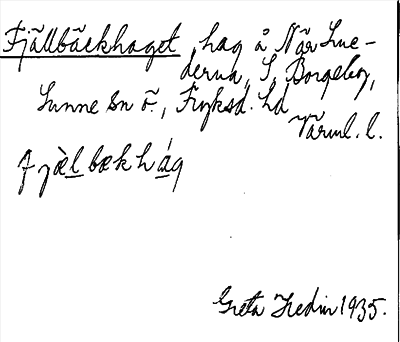 Fjällbäckhaget, hag å När Lue-
derna, S. Borgeby,
Sunne sn ö., Fryksd. hd
Värml. l.
fjæ̀lbækhág
Greta Hedin 1935.